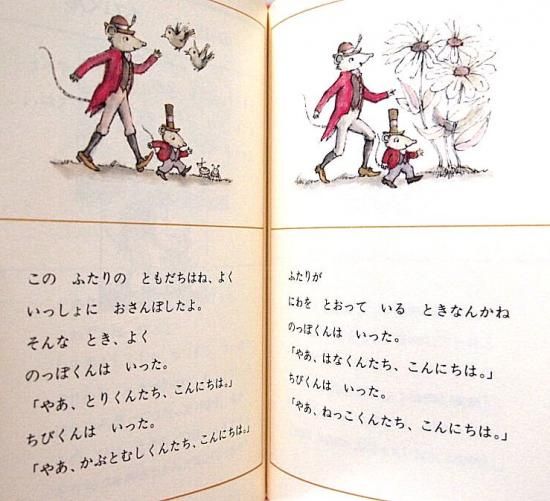 この　ふたりの　ともだちはね、よく
いっしょに　おさんぽしたよ。
そんな　とき、よく
のっぽくんは　いった。
「やあ、とりくんたち、こんにちは。」
ちびくんは　いった。
「やあ、かぶとむしくんたち、こんにちは。」
ふたりが
にわを　とおって　いる　ときなんかね
のっぽくんは　いった。
「やあ、はなくんたち、こんにちは。」
ちびくんは　いった。
「やあ、ねっこくんたち、こんにちは。」